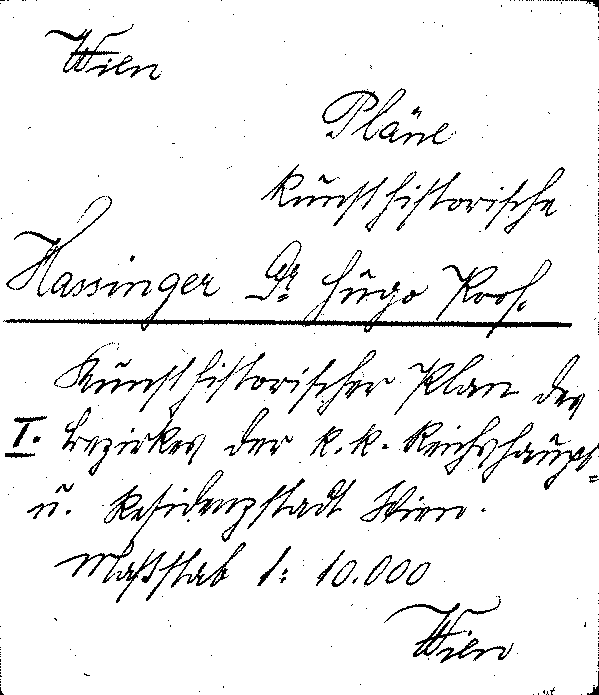 Wien
Pläne
kunsthistorische
Hassinger Dr Hugo Prof.
Kunsthistorischer Plan des
I. Bezirkes der k. k. Reichshaupt-
u. Residenzstadt Wien.
Maßstab 1: 10.000
Wien